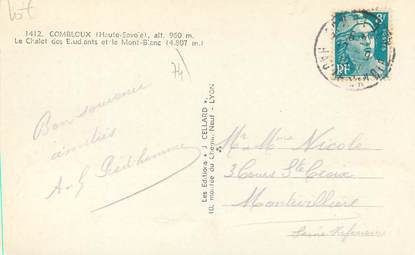 1412. COMBLOUX (Haute-Savoie), alt. 960 m.
Le Chalet des Etudiants et le Mont-Blanc (4.807 m.)
74
Bon souvenir
amitiés
Les Editions * J. CELLARD *
10, montée du Chemin-Neuf - LYON
8F
POSTES
RF
Mr Mme Nicole
3 Cours Ste Croix
Montivilliers
Seine Inférieure